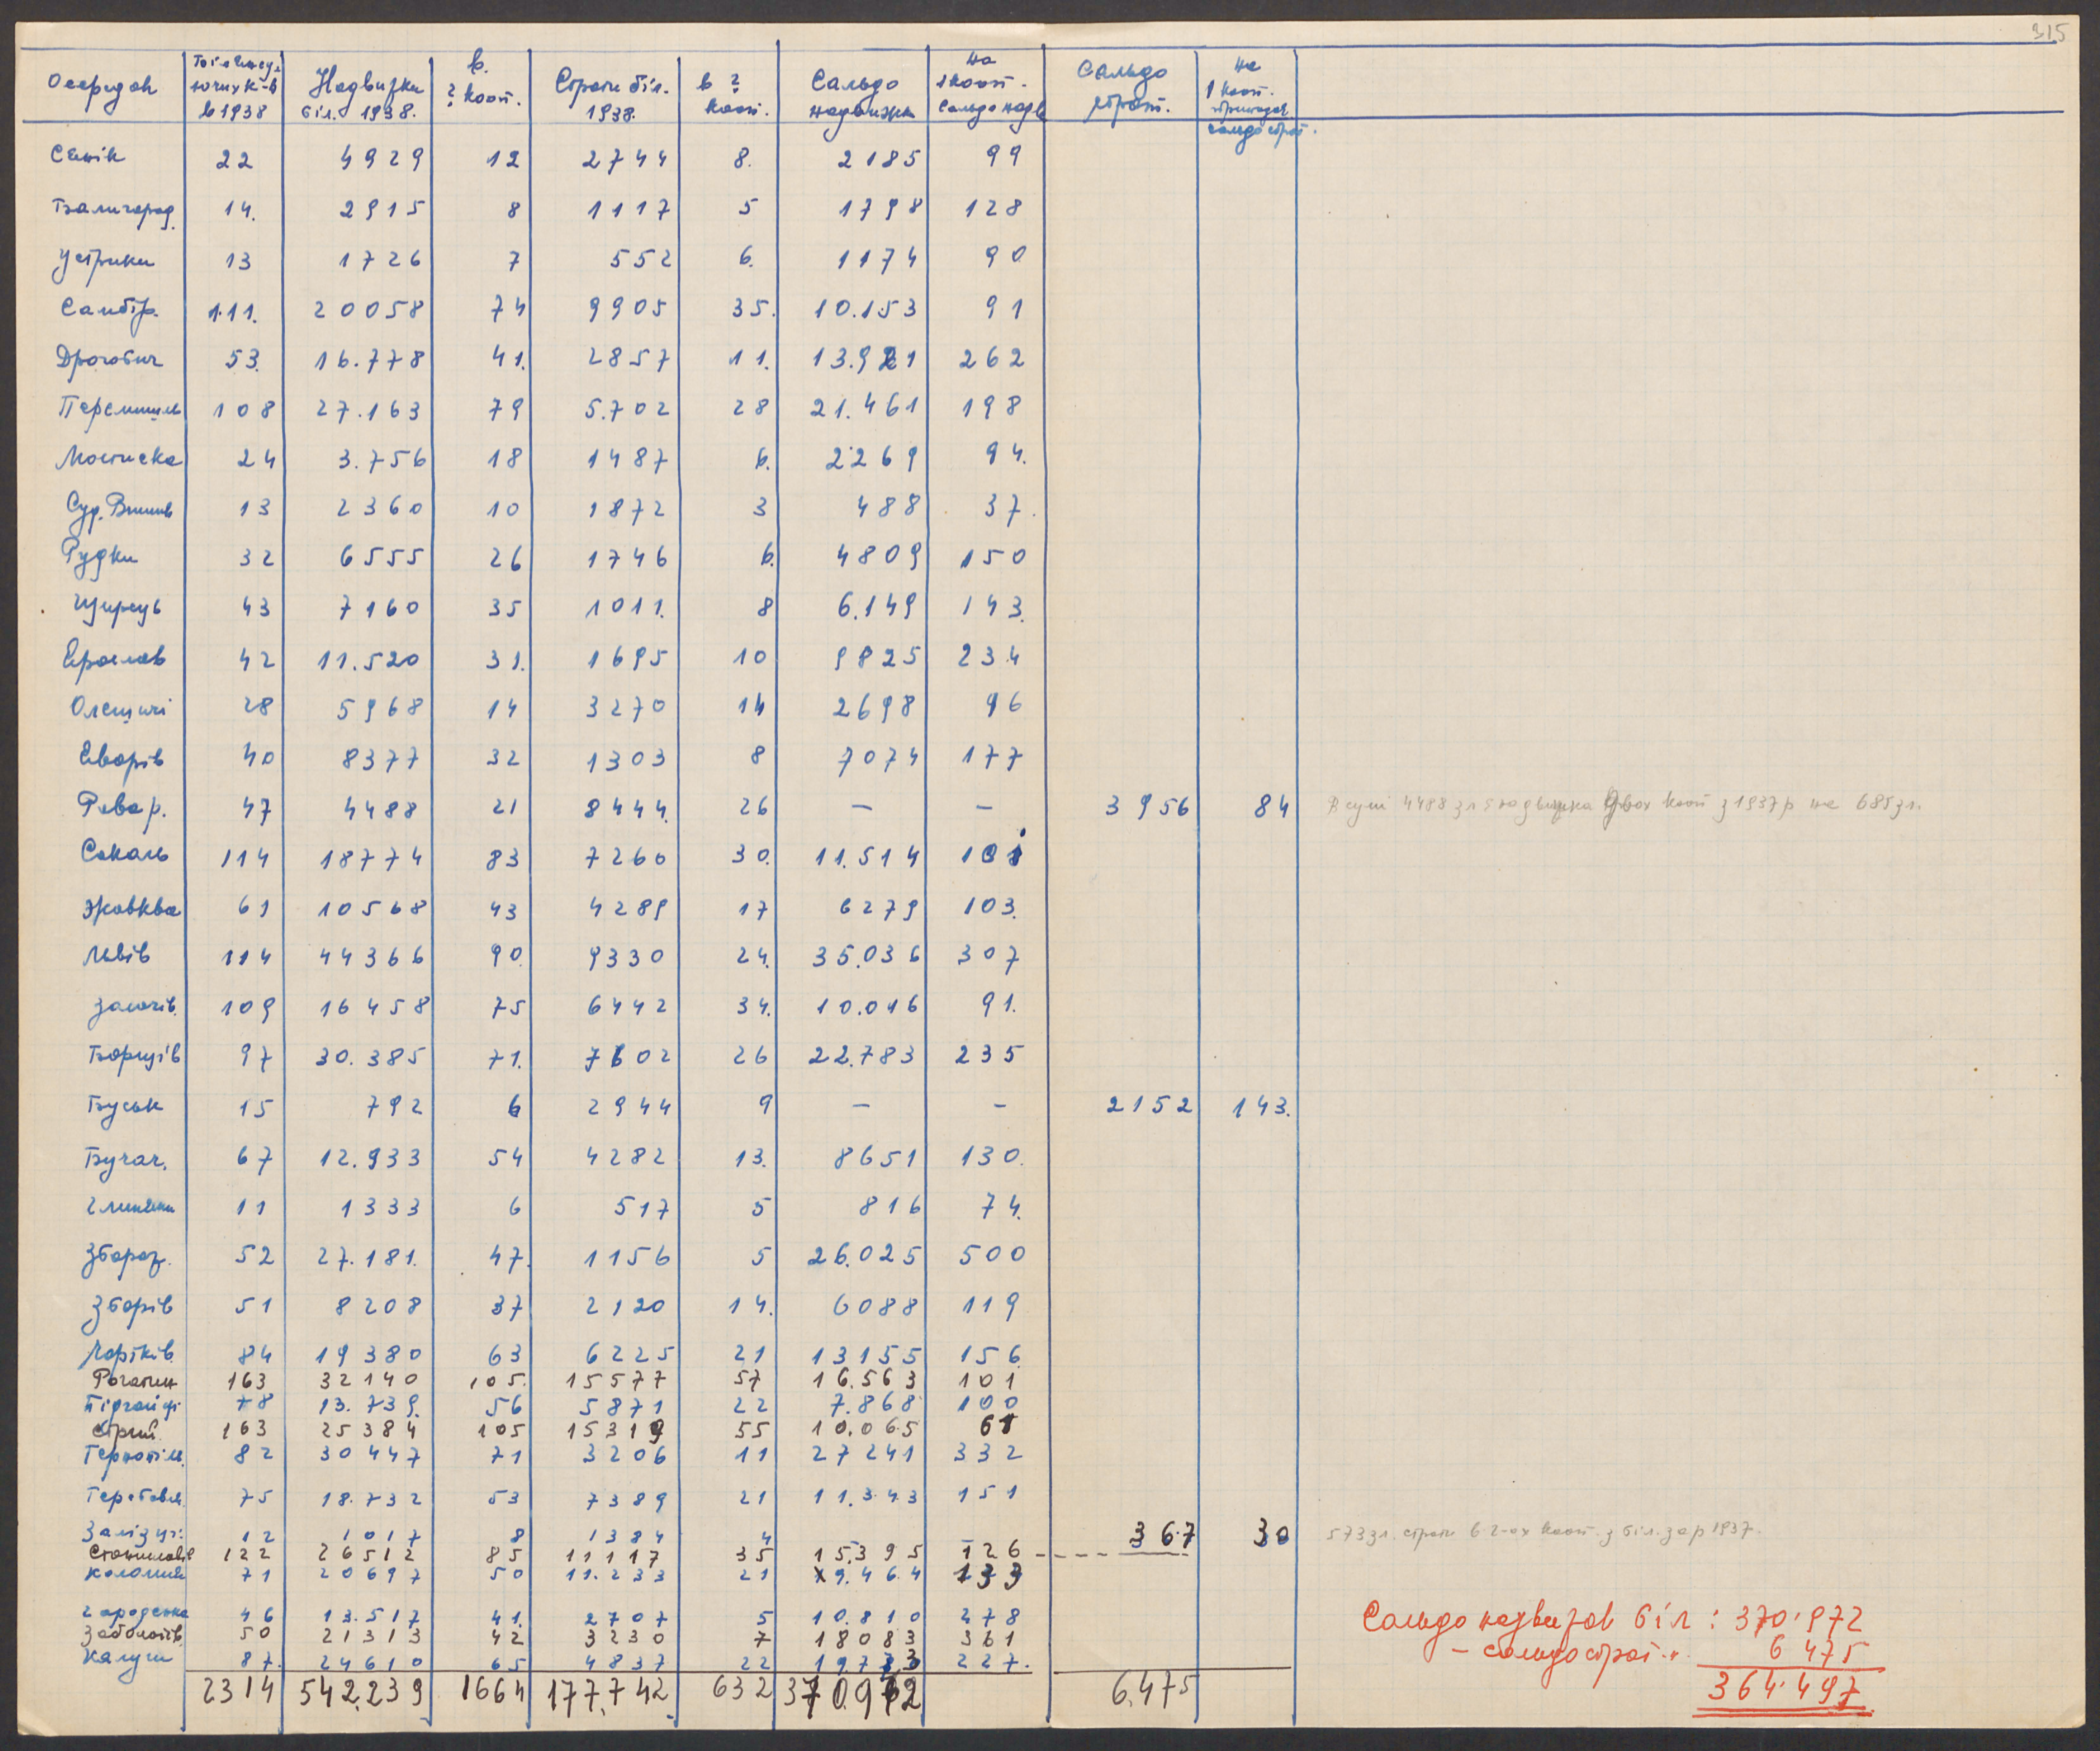 315
Осередок | Білянсу- ючих к-в в 1938 | Надвижки біл. 1938. | в. ? кооп. | Страти біл. 1938. | в ? кооп. | Сальдо надвижки | на 1 кооп. сальдо надв | Сальдо страт. | на 1 кооп. припадає сальдо страт.
Сянік 22 4929 12 2744 8. 2185 99
Балигород. 14. 2915 8 1117 5 1798 128
Устрики 13 1726 7 552 6. 1174 90
Самбір. 111. 20058 74 9905 35. 10.153 91
Дрогобич 53. 16.778 41. 2857 11. 13.921 262
Перемишль 108 27.163 79 5.702 28 21.461 198
Мостиска 24 3.756 18 1487 6. 2269 94.
Суд. Вишня 13 2360 10 1872 3 488 37.
Рудки 32 6555 26 1746 6. 4809 150
Щирець 43 7160 35 1011. 8 6.149 143.
Ярослав 42 11.520 31. 1695 10 9825 234
Олешичі 28 5968 14 3270 14 2698 96
Яворів 40 8377 32 1303 8 7074 177
Рава р. 47 4488 21 8444. 26 – – 3956 84 В сумі 4488 зл є надвижка двох кооп з 1937 р на 685 зл.
Сокаль 114 18774 83 7260 30. 11.514 101
Жовква 61 10568 43 4289 17 6279 103.
Львів 114 44366 90. 9330 24. 35.036 307
Золочів. 109 16458 75 6442 34. 10.016 91.
Борщів 97 30.385 71. 7602 26 22.783 235
Буськ 15 792 6 2944 9 – – 2152 143.
Бучач. 67 12.933 54 4282 13. 8651 130.
Глиняни 11 1333 6 517 5 816 74.
Збараж. 52 27.181. 47. 1156 5 26.025 500
Зборів 51 8208 37 2120 14. 6088 119
Чортків. 84 19380 63 6225 21 13155 156.
Рогатин 163 32140 105. 15577 57 16.563 101
Підгайці 78 13.739. 56 5871 22 7.868 100
Стрий. 163 25384 105 15319 55 10.065 61
Тернопіль. 82 30447 71 3206 11 27241 332
Теребовля. 75 18.732 53 7389 21 11.343 151
Залізці: 12 1017 8 1384 4 – – 367 30 573 зл. страти в 2-ох кооп. з біл. за р 1937.
Станиславів 122 26512 85 11117 35 15.395 126
Коломия 71 20697 50 11.233 21 9.464 133
Городенка 46 13.517 41. 2707 5 10.810 278
Заболотів. 50 21313 42 3230 7 18083 361
Калуш 87. 24610 65 4837 22 19773 227.
2314 542.239 1664 177.742 632 370.972 6.475
Сальдо надвижок біл: 370.972
– сальдо страт „ 6 475
364.497